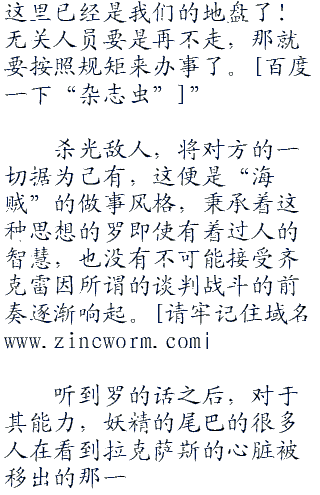 这里已经是我们的地盘了！
无关人员要是再不走，那就
要按照规矩来办事了。[百度
一下“杂志虫”]”
杀光敌人，将对方的一
切据为己有，这便是“海
贼”的做事风格，秉承着这
种思想的罗即使有着过人的
智慧，也没有不可能接受齐
克雷因所谓的谈判战斗的前
奏逐渐响起。[请牢记住域名
www.zincworm.com|
听到罗的话之后，对于
其能力，妖精的尾巴的很多
人在看到拉克萨斯的心脏被
移出的那一